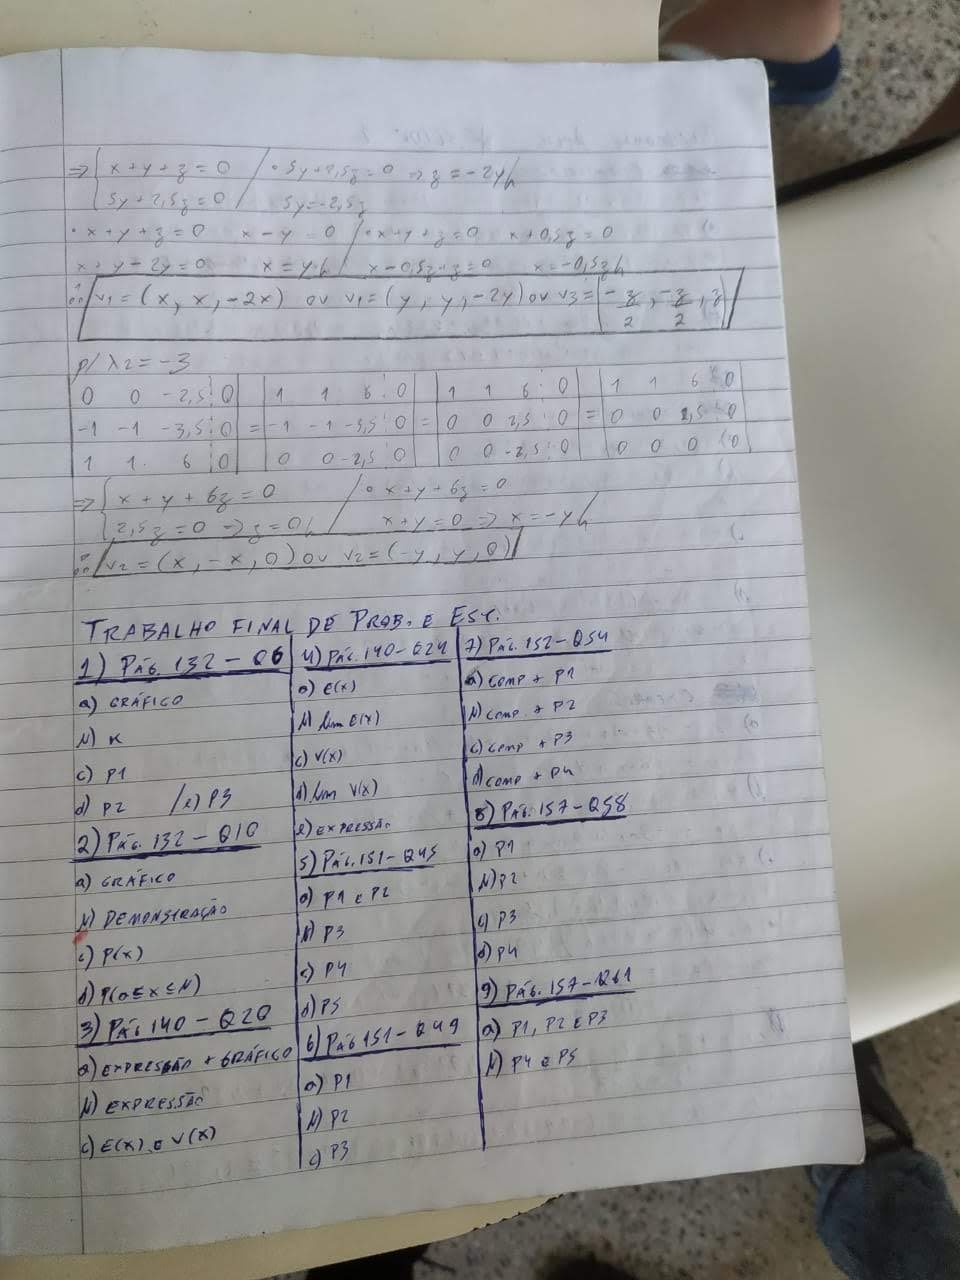 ⇒ { x + y + z = 0 / • 5y + 2,5z = 0 ⇒ z = -2y
5y + 2,5z = 0 / 5y = -2,5z
• x + y + z = 0 x - y = 0 / • x + y + z = 0 x + 0,5z = 0
x + y - 2y = 0 x = y / x - 0,5z + z = 0 x = -0,5z
∴ v1 = (x, x, -2x) ou v1 = (y, y, -2y) ou v3 = (-z/2, -z/2, z)
p/ λ2 = -3
0 0 -2,5 0 | 1 1 6 0 | 1 1 6 0 | 1 1 6 0
-1 -1 -3,5 0 = -1 -1 -3,5 0 = 0 0 2,5 0 = 0 0 2,5 0
1 1 6 0 | 0 0 -2,5 0 | 0 0 -2,5 0 | 0 0 0 0
⇒ { x + y + 6z = 0 / • x + y + 6z = 0
2,5z = 0 ⇒ z = 0 / x + y = 0 ⇒ x = -y
∴ v2 = (x, -x, 0) ou v2 = (-y, y, 0)
TRABALHO FINAL DE PROB. E EST.
1) PÁG. 132 - Q6
a) GRÁFICO
b) K
c) P1
d) P2 / e) P3
2) PÁG. 132 - Q10
a) GRÁFICO
b) DEMONSTRAÇÃO
c) P(X)
d) P(a ≤ X ≤ b)
3) PÁG 140 - Q20
a) EXPRESSÃO + GRÁFICO
b) EXPRESSÃO
c) E(X) e V(X)
4) PÁG. 140 - Q24
a) E(X)
b) lim E(X)
c) V(X)
d) lim V(X)
e) EXPRESSÃO
5) PÁG. 151 - Q45
a) P1 e P2
b) P3
c) P4
d) P5
6) PÁG 151 - Q49
a) P1
b) P2
c) P3
7) PÁG. 152 - Q54
a) COMP + P1
b) COMP. + P2
c) COMP + P3
d) COMP + P4
8) PÁG. 157 - Q58
a) P1
b) P2
c) P3
d) P4
9) PÁG. 157 - Q61
a) P1, P2 e P3
b) P4 e P5